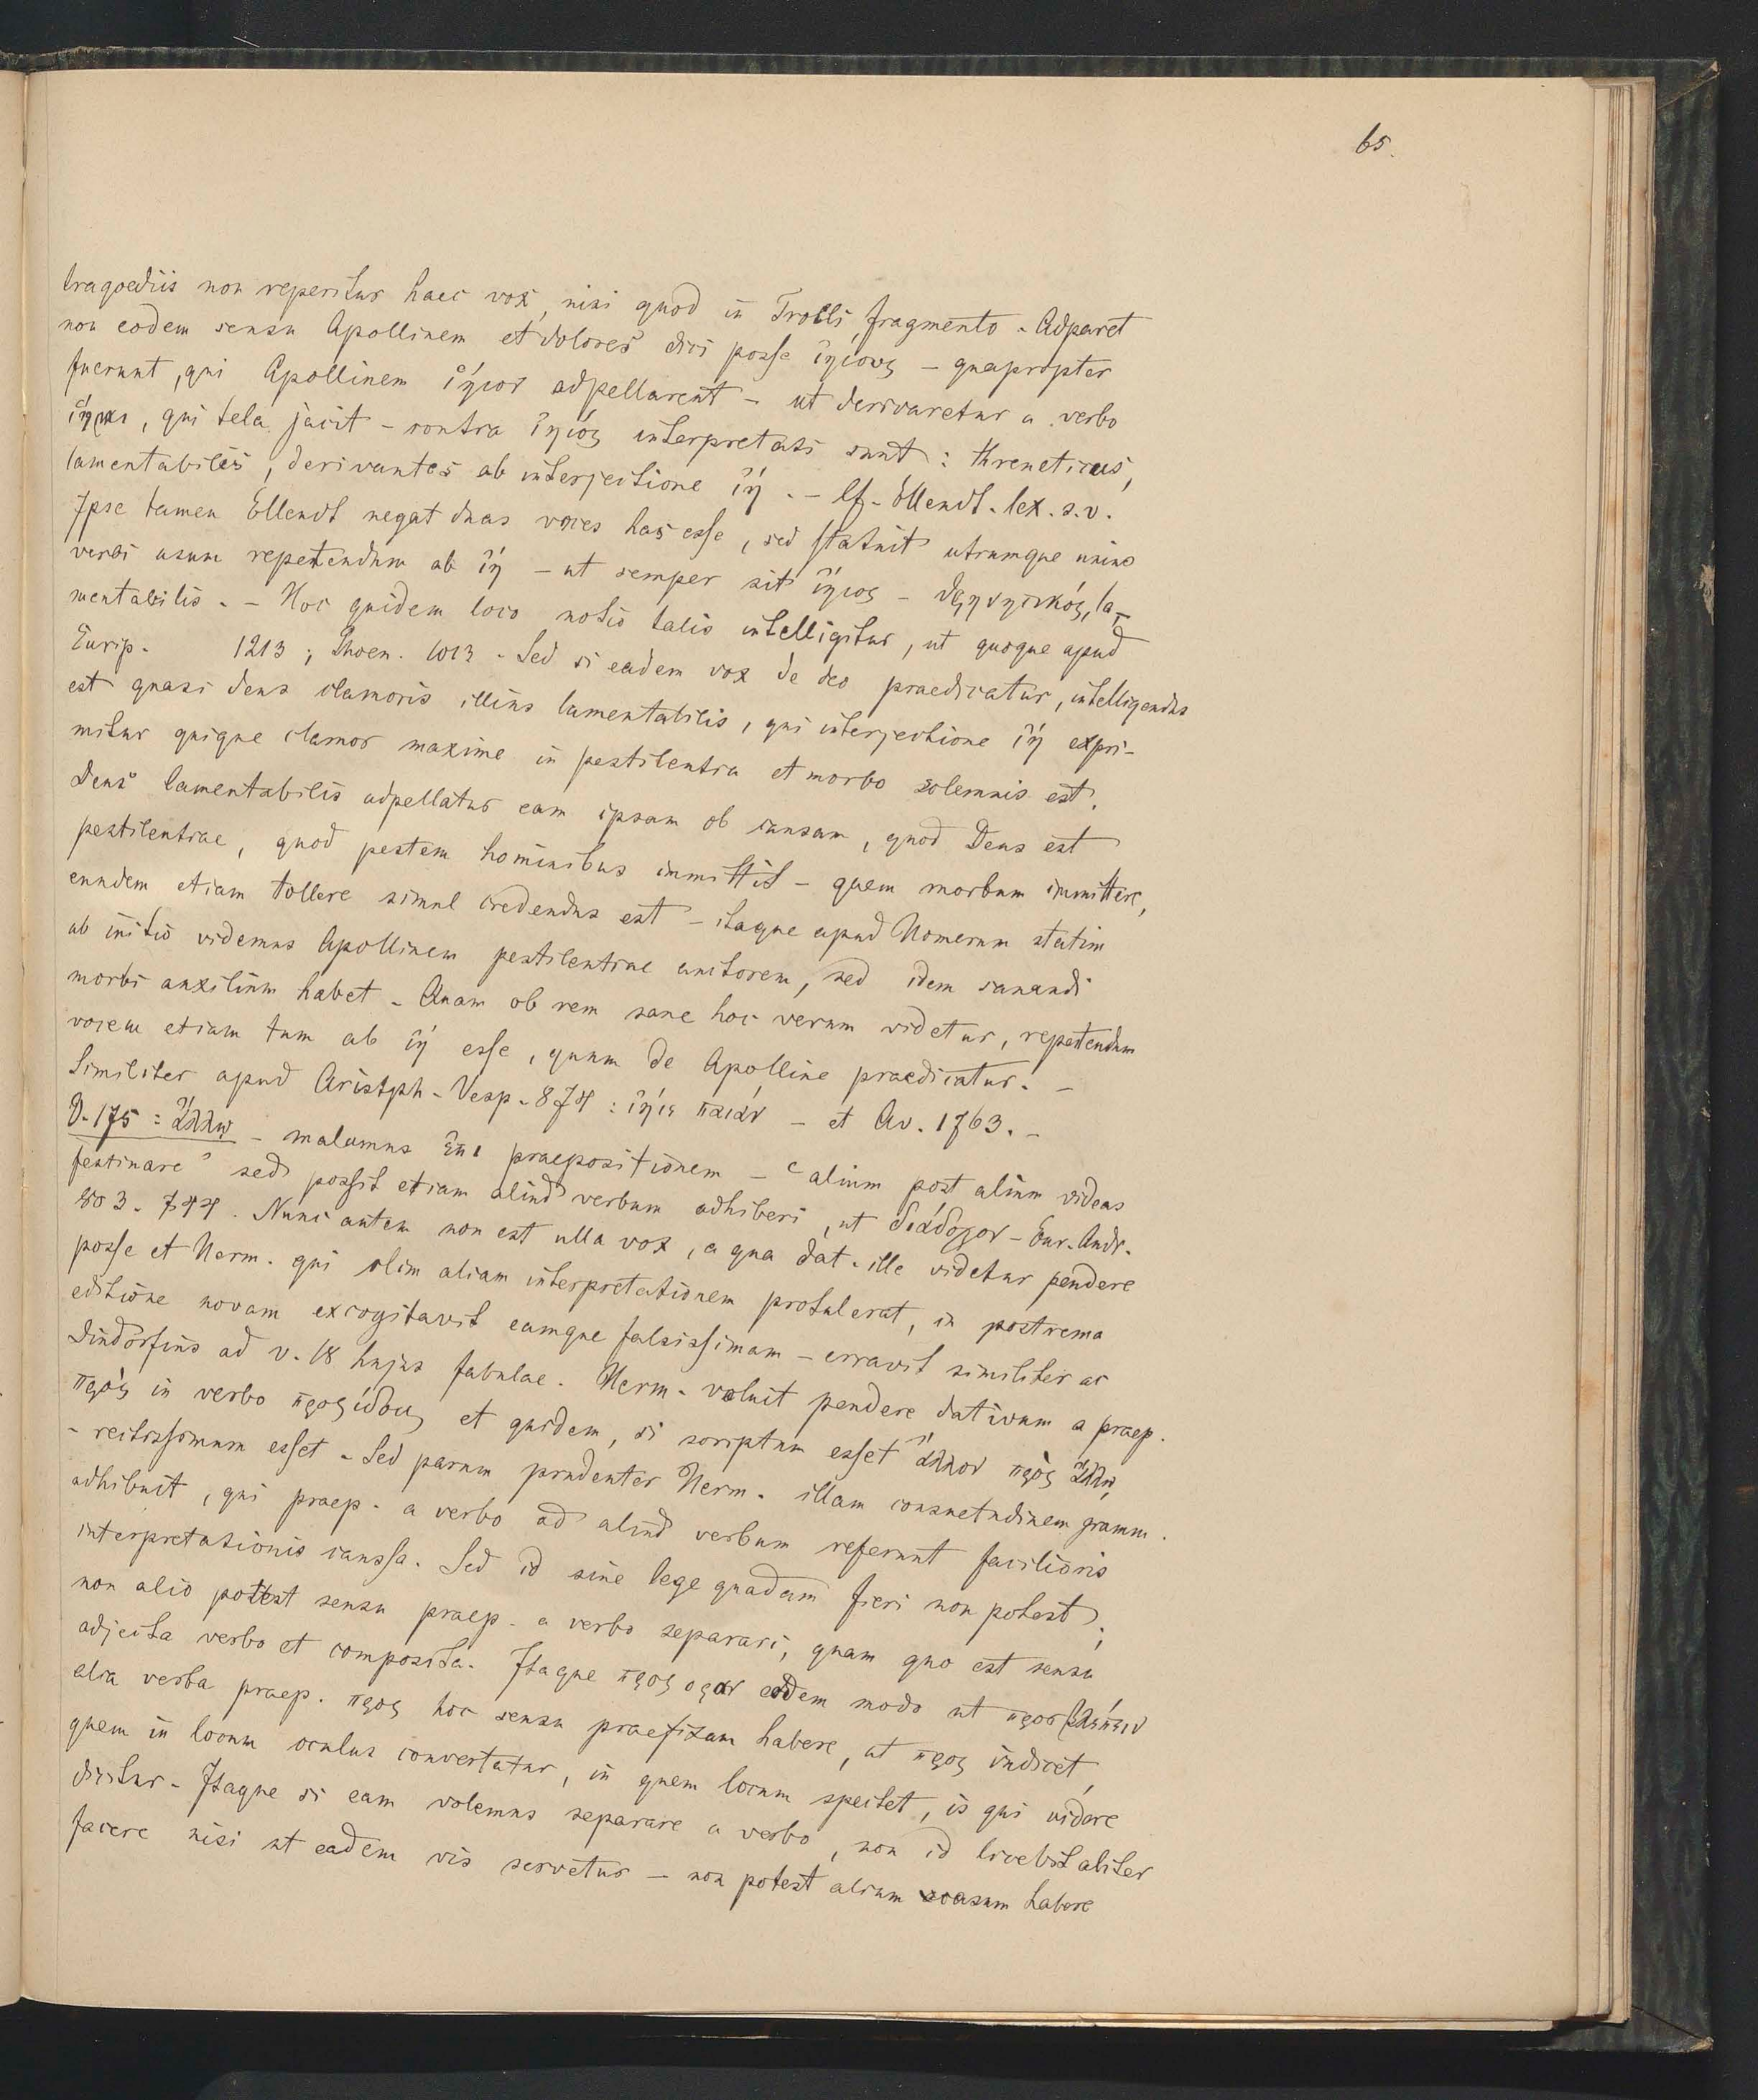 65.
tragoediis non reperitur haec vox, nisi quod in Troili fragmento. Adparet
non eodem sensu Apollinem et dolores dici posse ἰηίους – quapropter
fuerunt, qui Apollinem ἰήιον adpellarent – ut derivaretur a verbo
ἵημι, qui tela jacit – contra ἰηιός interpretati sunt: threneticus,
lamentabilis, derivantes ab interjectione ἰή. – Cf. Ellendt. lex. s.v.
Ipse tamen Ellendt negat duas voces has esse, sed statuit utrumque unius
verbi usum repetendum ab ἰή – ut semper sit ἰήιος – θρηνητικός, la-
mentabilis. – Hoc quidem loco notio talis intelligitur, ut quoque apud
Eurip. 1213; Phoen. 1013. Sed si eadem vox de deo praedicatur, intelligendus
est quasi deus clamoris illius lamentabilis, qui interjectione ἰή expri-
mitur quique clamor maxime in pestilentia et morbo solemnis est.
Deus lamentabilis adpellatur eam ipsam ob causam, quod Deus est
pestilentiae, quod pestem hominibus immittit – quem morbum immittere,
eundem etiam tollere simul credendus est – itaque apud Homerum statim
ab initio videmus Apollinem pestilentiae auctorem, sed idem sanandi
morbi auxilium habet. Quam ob rem sane hoc verum videtur, repetendum
vocem etiam tum ab ἰή esse, quum de Apolline praedicatur. –
Similiter apud Aristph. Vesp. 874: ἰήιε παιάν – et Av. 1763. –
V. 175: ἄλλῳ – malumus ἐπι praepositionem – "alium post alium videas
festinare" sed possit etiam aliud verbum adhiberi, ut διάδοχον – Eur. Andr.
803. 744. Nunc autem non est ulla vox, a qua dat. ille videtur pendere
posse et Herm. qui olim aliam interpretationem protulerat, in postrema
editione novam excogitavit eamque falsissimam – erravit similiter ac
Dindorfius ad v. 18 hujus fabulae. Herm. voluit pendere dativum a praep.
πρὸς in verbo προςίδοις et quidem, si scriptum esset ἄλλον πρὸς ἄλλῳ,
– rectissimum esset. Sed parum prudenter Herm. illam consuetudinem gramm.
adhibuit, qui praep. a verbo ad aliud verbum referunt facilioris
interpretationis caussa. Sed id sine lege quadam fieri non potest;
non alio potest sensu praep. a verbo separari, quam quo est sensu
adjecta verbo et composita. Itaque προςορᾶν eodem modo ut προςβλέπειν
alia verba praep. προς hoc sensu praefixam habere, ut προς indicet,
quem in locum oculus convertatur, in quem locum spectet, is qui videre
dicitur. Itaque si eam volemus separare a verbo, non id licebit aliter
facere nisi ut eadem vis servetur – non potest alium casum habere